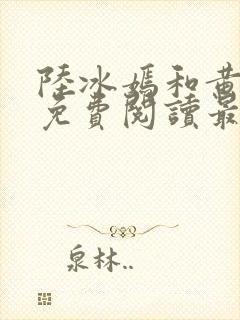 陸冰嫣和黃
免費閱讀最
泉林..